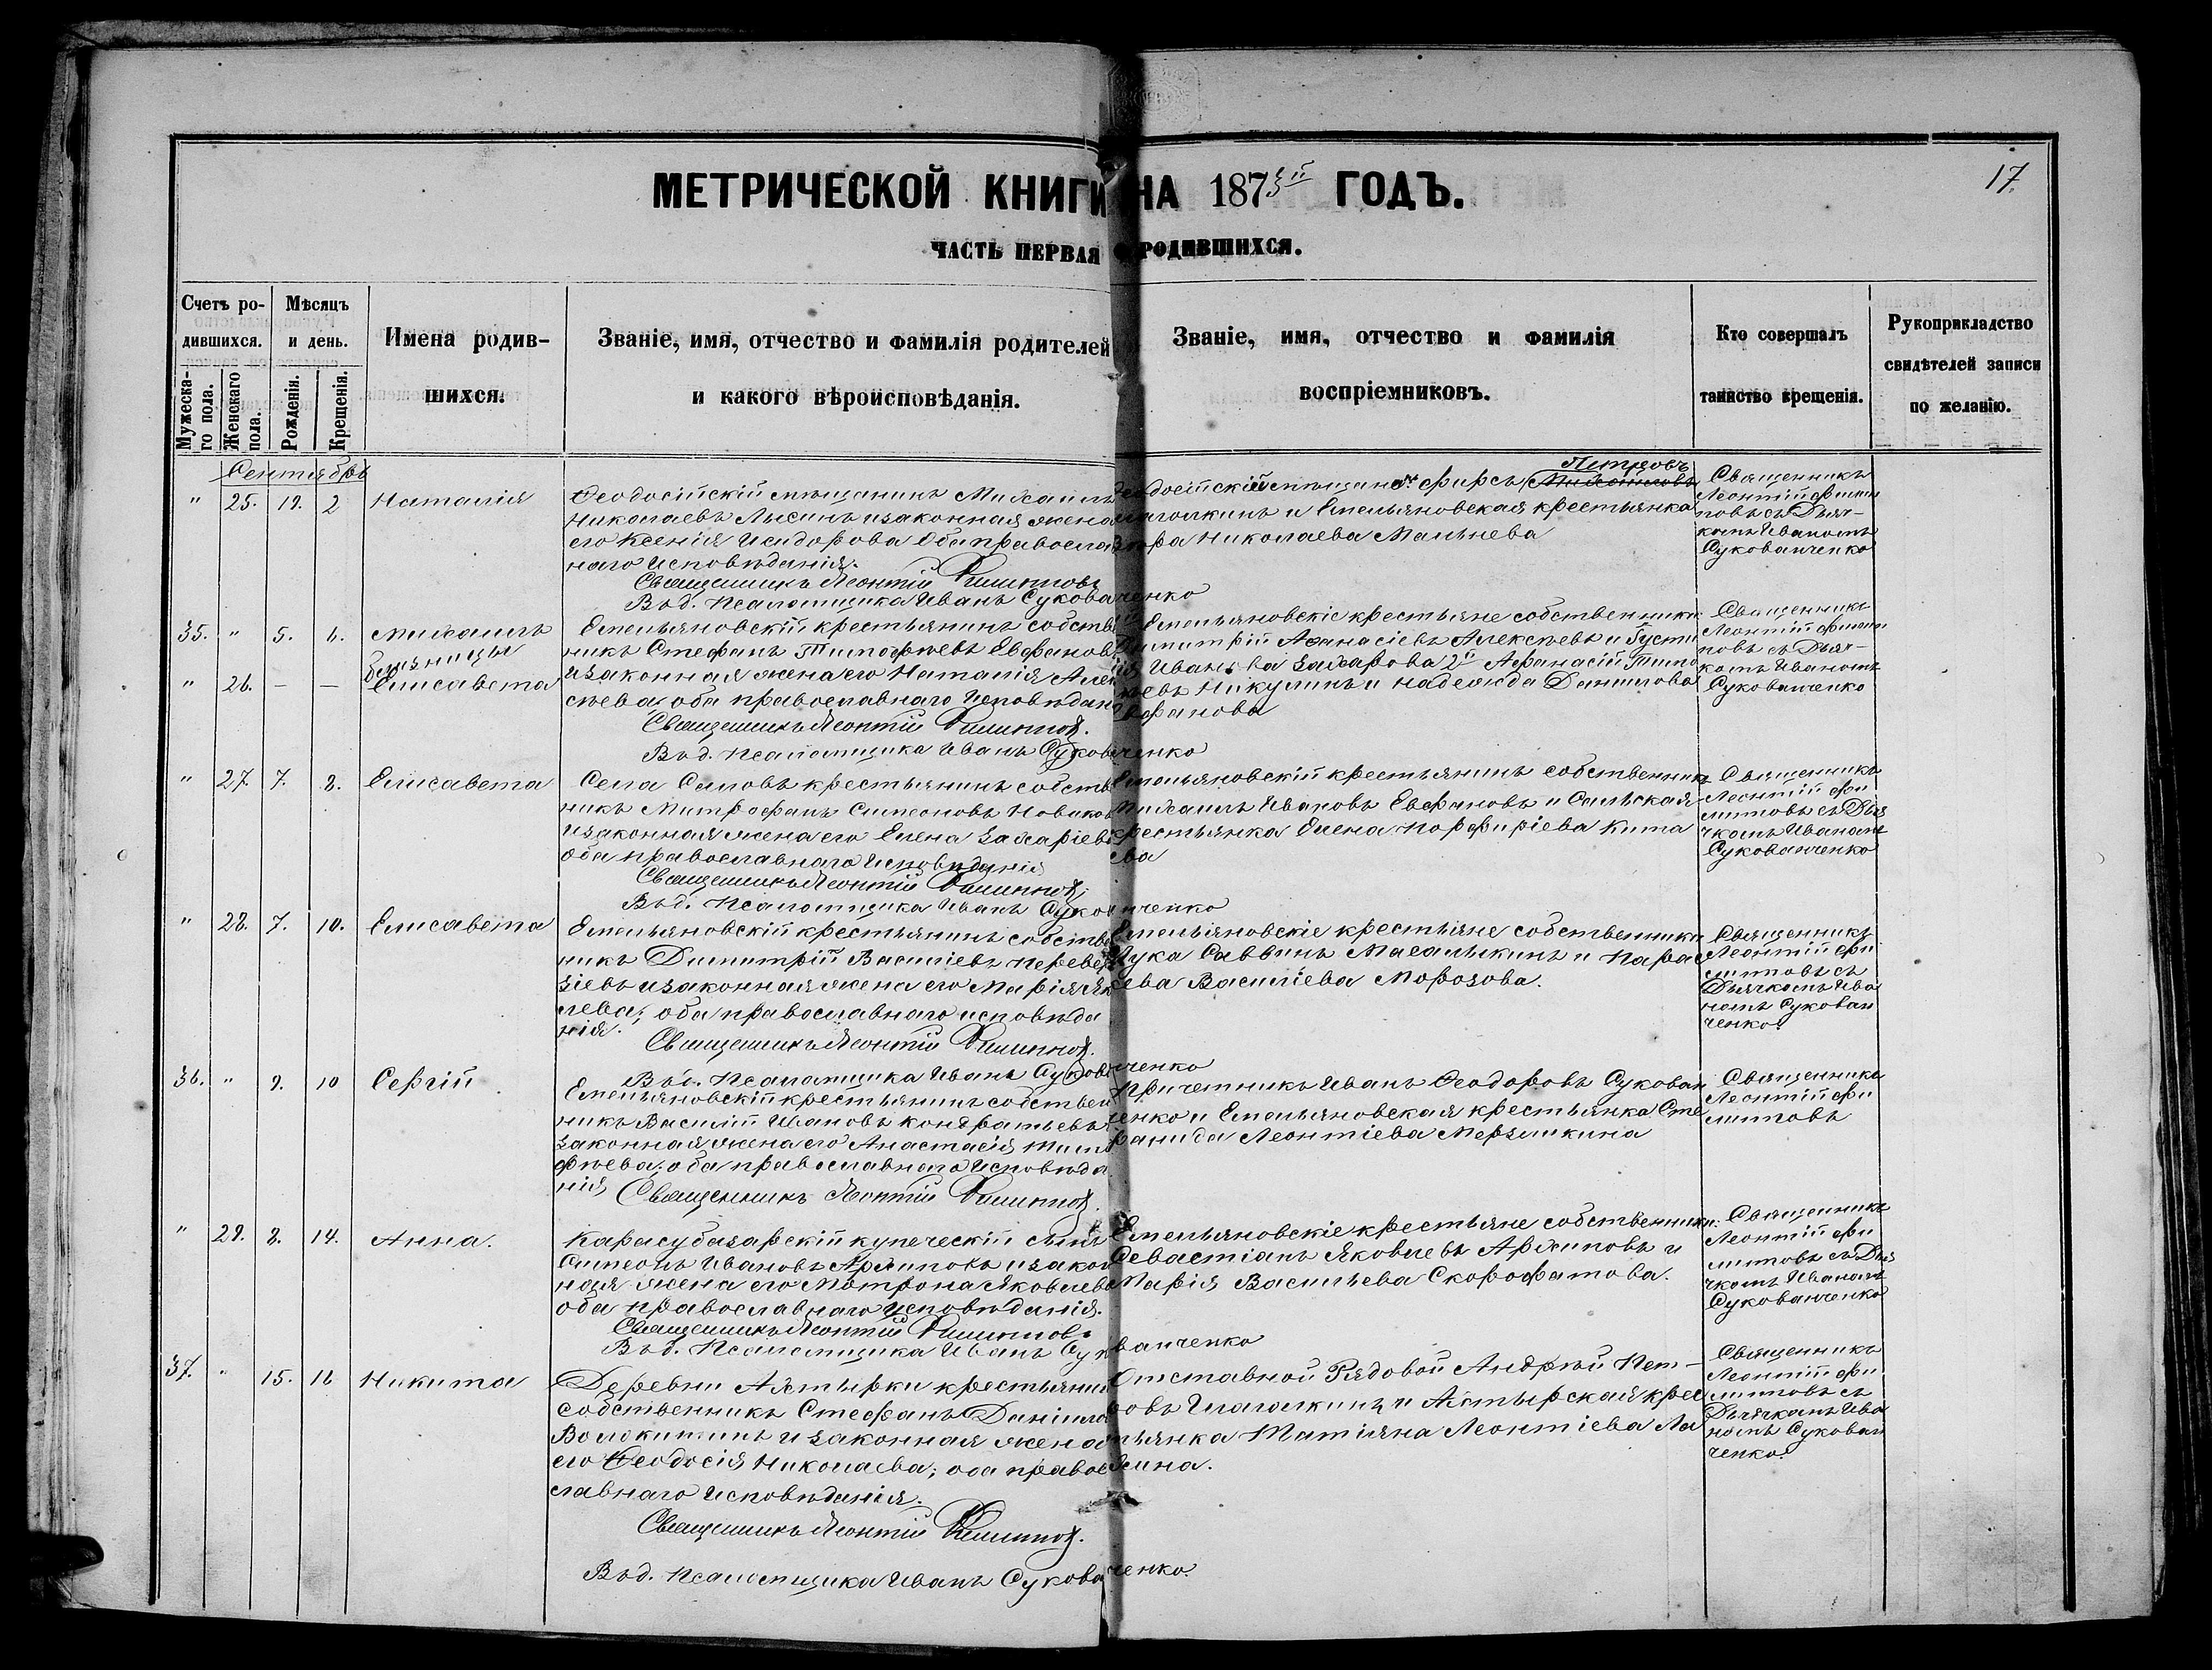 17.
МЕТРИЧЕСКОЙ КНИГИ НА 1873й ГОДЪ.
ЧАСТЬ ПЕРВАЯ О РОДИВШИХСЯ.
Счетъ родившихся.
Мужеска-
го пола.
Женскаго
пола.
Мѣсяцъ
и день.
Рожденія.
Крещенія.
Имена родив-
шихся.
Званіе, имя, отчество и фамилія родителей
и какого вѣроисповѣданія.
Званіе, имя, отчество и фамилія
воспріемниковъ.
Кто совершалъ
таинство крещенія.
Рукоприкладство
свидѣтелей записи
по желанію.
Сентябрь
" 25. 19. 2 Наталія
Ѳеодосійскій мѣщанинъ Михаилъ
Николаевъ Лысинъ и законная жена
его Ксенія Исидорова оба православ
наго исповѣданія.
Священникъ Леонтій Филиповъ
В. д. Псаломщика Иванъ Сукованченко
Петровъ
Ѳеодосійскій мѣщанинъ Фирсъ
и Емельяновская крестьянка
Николаева Мальнева
Священникъ
Леонтій Фили
повъ съ Дьяч-
комъ Иваномъ
Сукованченко
35. " 5. 6. Михаилъ
близнецы
" 26. — — Елисавета
Емельяновскій крестьянинъ собствен
никъ Стефанъ Тимофѣевъ Евфановъ
и законная жена его Наталія Алек
сѣева оба православнаго исповѣданія
Священникъ Леонтій Филиповъ.
В. д. Псаломщика Иванъ Сукованченко
Емельяновскіе крестьяне собственники
Димитрій Афанасіевъ Алексѣевъ и Густи
нія Иванова Захарова 2й Афанасій Тимо
ѳеевъ Никулинъ и Надежда Данилова
Евфанова
Священникъ
Леонтій Фили
повъ съ Дьяч-
комъ Иваномъ
Сукованченко
" 27. 7. 8. Елисавета
Села Саловъ крестьянинъ собствен
никъ Митрофанъ Симеоновъ Новиковъ
и законная жена его Елена Захаріева
оба православнаго исповѣданія
Священникъ Леонтій Филиповъ.
В. д. Псаломщика Иванъ Сукованченко
Емельяновскій крестьянинъ собственникъ
Михаилъ Ивановъ Евфановъ и Сальская
крестьянка Елена Порфиріева Кита
ева
Священникъ
Леонтій Фи
липовъ съ Дья
чкомъ Иваномъ
Сукованченко
" 28. 7. 10. Елисавета
Емельяновскій крестьянинъ собствен
никъ Димитрій Василіевъ
и законная жена его Марія Яков
лева; оба православнаго исповѣда
нія.
Священникъ Леонтій Филиповъ.
В. д. Псаломщика Иванъ Сукованченко
Емельяновскіе крестьяне собственники
Лука Саввинъ Масалыкинъ и Парас
ева Василіева Морозова.
Священникъ
Леонтій Фи
липовъ съ
Дьячкомъ Ива
номъ Сукован
ченко
36. " 9. 10 Сергій
Емельяновскій крестьянинъ собствен
никъ Василій Ивановъ Кондратьевъ и
законная жена его Анастасія Тимо
фѣева; оба православнаго исповѣда
нія
Священникъ Леонтій Филиповъ.
Причетникъ Иванъ Ѳеодоровъ Сукован
ченко и Емельяновская крестьянка Сте
фанида Леонтіева Мерзликина
Священникъ
Леонтій Фи
липовъ
" 29. 8. 14. Анна.
Карасубазарскій купеческій сынъ
Симеонъ Ивановъ Архиповъ и закон
ная жена его Матрона Яковлева
оба православнаго исповѣданія.
Священникъ Леонтій Филиповъ
В. д. Псаломщика Иванъ Сукованченко
Емельяновскіе крестьяне собственники:
Севастіанъ Яковлевъ Архиповъ и
Марія Васильева Скорофатова.
Священникъ
Леонтій Фи
липовъ съ Дья
чкомъ Иваномъ
Сукованченко
37. " 15. 16 Никита
Деревни Ахтырки крестьянинъ
собственникъ Стефанъ Даніиловъ
Волокитинъ и законная жена
его Ѳеодосія Николаева; оба право
славнаго исповѣданія.
Священникъ Леонтій Филиповъ.
В. д. Псаломщика Иванъ Сукованченко.
Отставной Рядовой Андрѣй Пет-
ровъ Шагалкинъ и Ахтырская крес
тьянка Татіяна Леонтіева Ла
зина.
Священникъ
Леонтій Фи
липовъ съ
Дьячкомъ Ива
номъ Сукован
ченко.